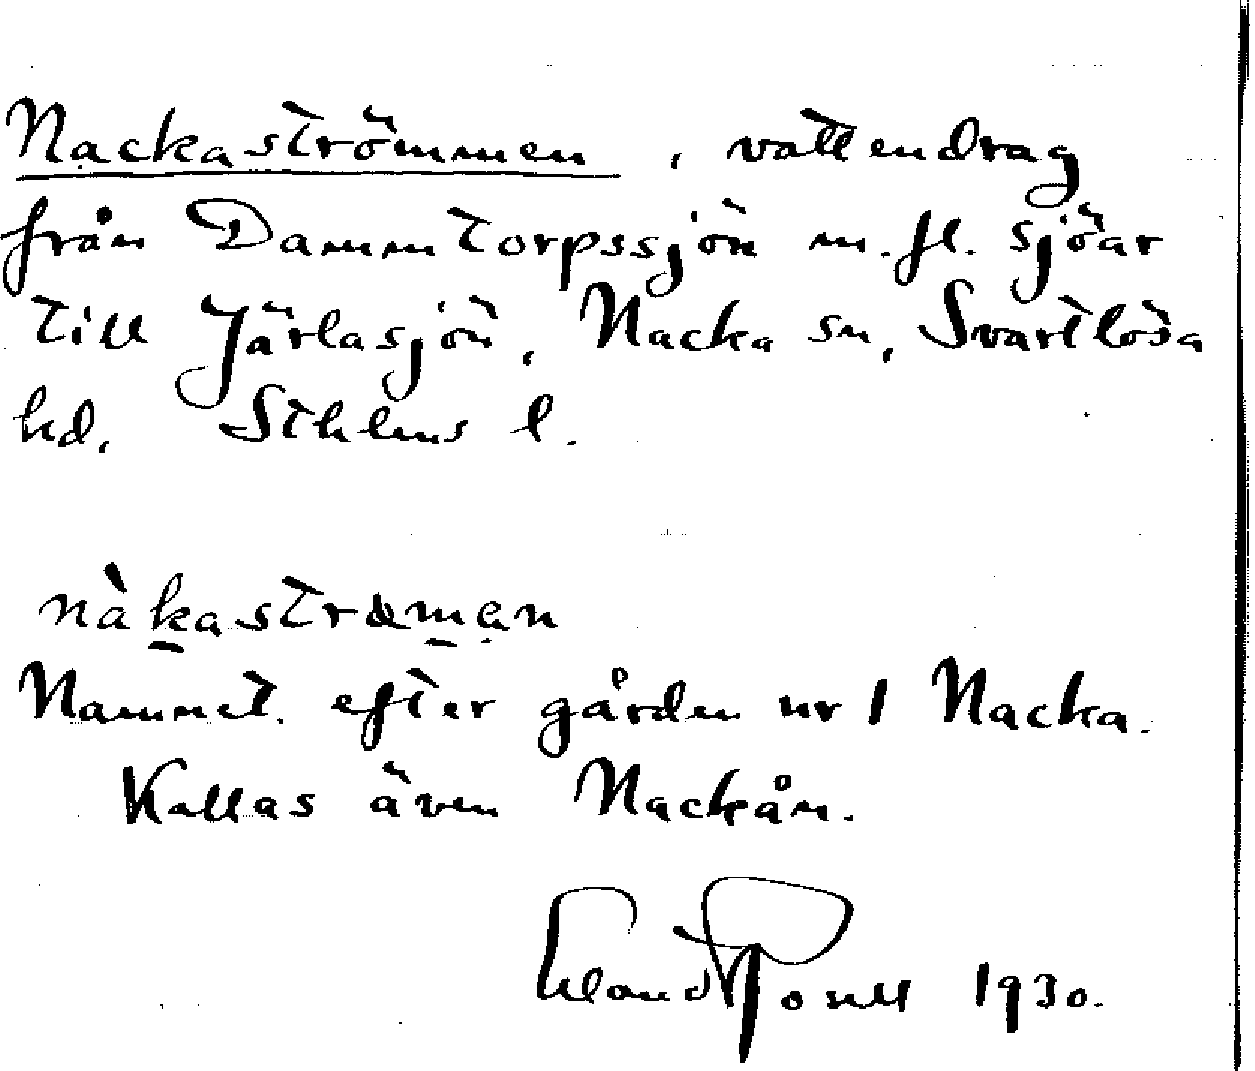 Nackaströmmen, vattendrag
från Dammtorpssjön m. fl. sjöar
till Järlasjön, Nacka sn, Svartlösa
hd, Sthlms l.
nàkastrœmən
Namnet efter gården nr 1 Nacka.
Kallas även Nackån.
Erland Rosell 1930.